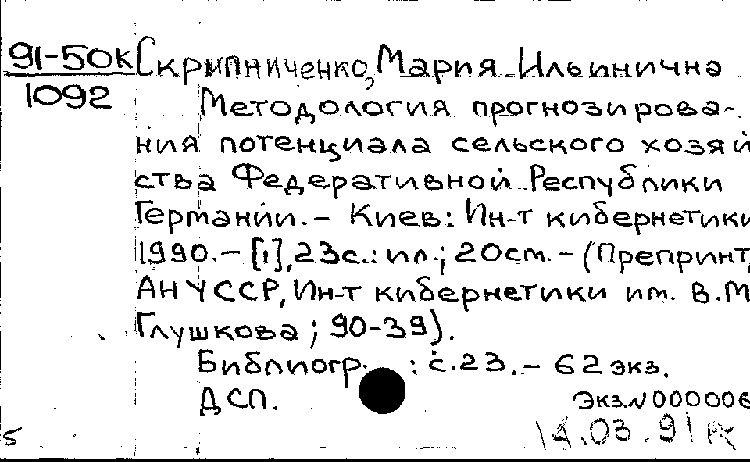 91-50к Скрипниченко, Мария Ильинична
1092 Методология прогнозирова-
ния потенциала сельского хозяй
ства Федеративной Республики
Германии. - Киев: Ин-т кибернетики
1990. - [1], 23с.: ил.; 20см. - (Препринт,
АН УССР, Ин-т кибернетики им. В.М
Глушкова; 90-39).
Библиогр.: с.23. - 62 экз.
ДСП. Экз.N 000006
5 14.03.91